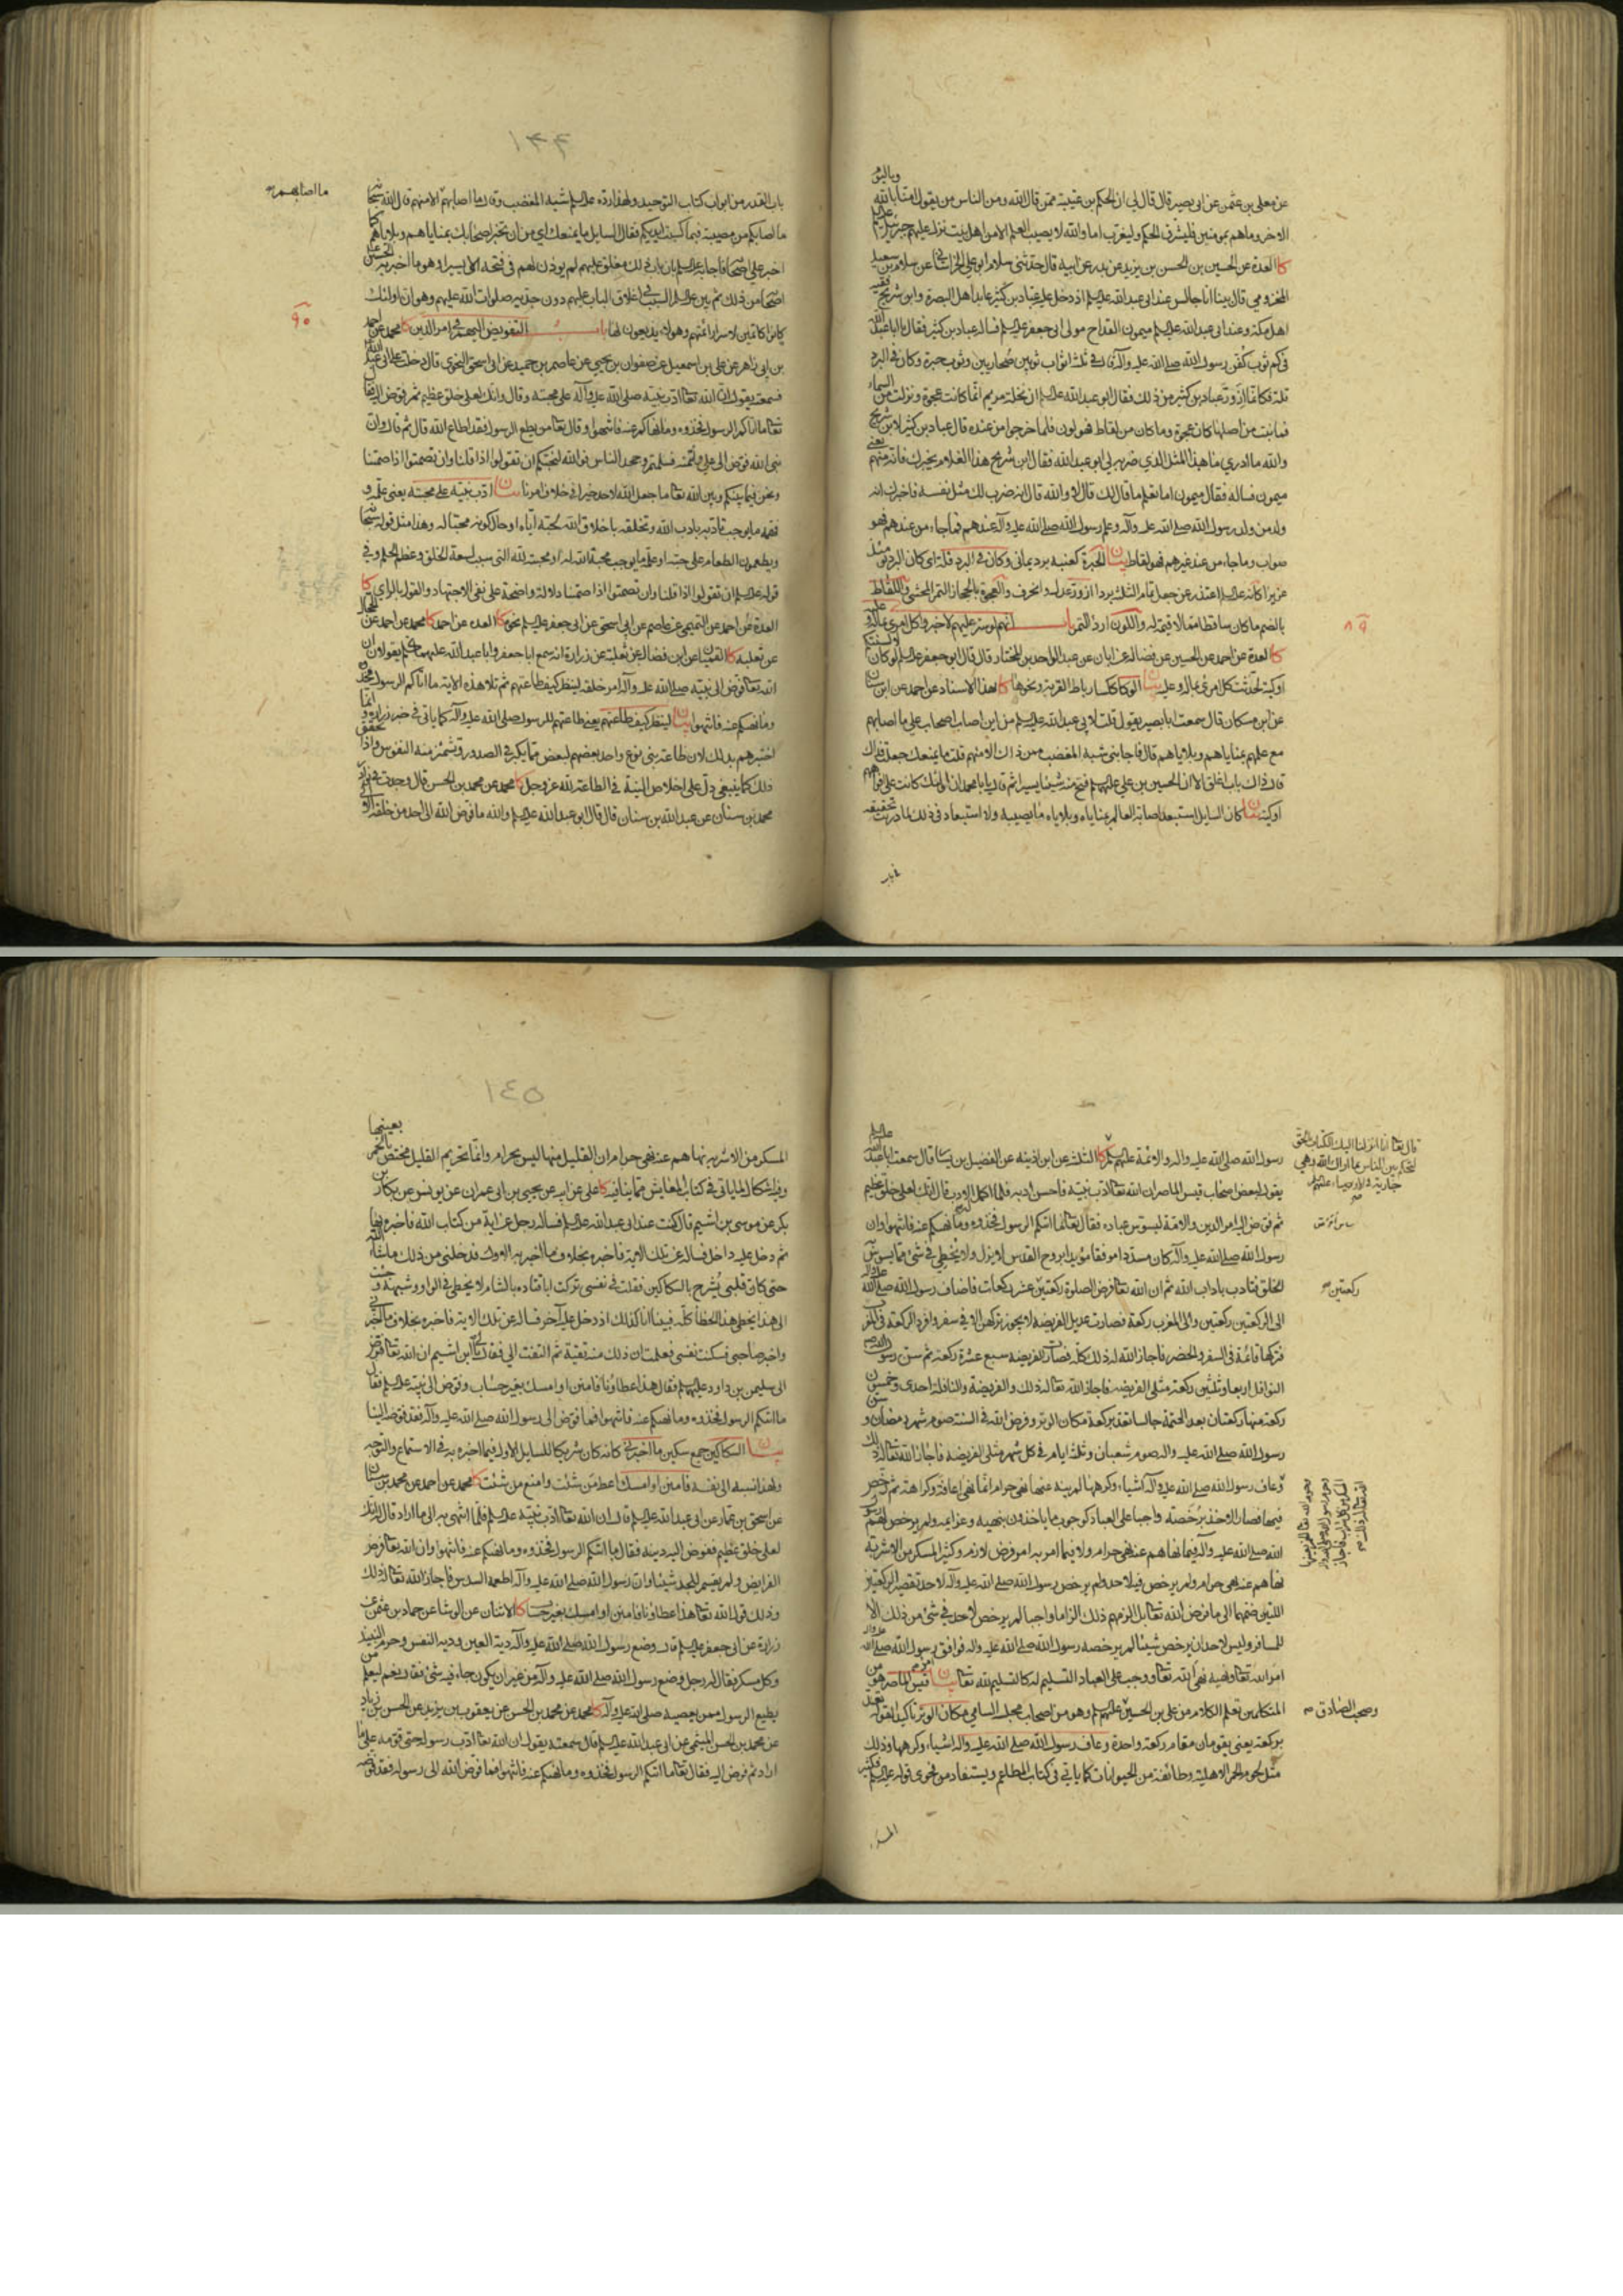 عن معلى بن عثمن عن ابى بصير قال قال لى ان الحكم بن عتيبة ممن قال الله ومن الناس من يقول امنا بالله
وباليوم
الاخر وما هم بمومنين فليشرق الحكم وليغرب اما والله لا يصيب العلم الا من اهل بيت نزل عليهم جبرئيل
كا العدة عن الحسين بن الحسن بن يزيد عن بدر عن ابيه قال حدثنى سلام ابو على الخراسانى عن سلام بن سعيد
المخزومى قال بينا انا جالس عند ابى عبد الله عليه السلم اذ دخل عليه عباد بن كثير عابد اهل البصرة وابن شريح فقيه
اهل مكة وعند ابى عبد الله عليه السلم ميمون القداح مولى ابى جعفر عليه السلم فساله عباد بن كثير فقال يا ابا عبد الله
فى كم ثوب كفن رسول الله صلى الله عليه وآله قال فى ثلثة اثواب ثوبين صحاريين وثوب حبرة وكان فى البرد
قلة فكانما ازور عباد بن كثير من ذلك فقال ابو عبد الله عليه السلم ان نخلة مريم انما كانت عجوة ونزلت من السماء
فما نبت من اصلها كان عجوة وما كان من لقاط فهو لون فلما خرجوا من عنده قال عباد بن كثير لابن شريح
والله ما ادرى ما هذا المثل الذى ضربه لى ابو عبد الله فقال ابن شريح هذا الغلام يخبرك فانه منهم يعنى
ميمون فساله فقال ميمون اما تعلم ما قال لك قال لا والله قال انه ضرب لك مثل نفسه فاخبرك انه
ولد من ولد رسول الله صلى الله عليه وآله وعلم رسول الله صلى الله عليه وآله عندهم فما جاء من عندهم فهو
صواب وما جاء من عند غيرهم فهو لقاط بيان الحبرة كعنبة برد يمانى وكان فى البرد قلة اى كان البرد يومئذ
عزيزا كانه عليه السلم اعتذر عن جعل تمام الثلث بردا ازور عدل وانحرف والعجوة بالحجاز التمر المحشى واللقاط
بالضم ما كان ساقطا مما لا قيمة له واللون اردا التمر باب انهم لو ستر عليهم لاخبروا كل امرئ بما له وعليه
كا العدة عن احمد عن الحسين عن فضالة عن ابان عن عبد الواحد بن المختار قال قال ابو جعفر عليه السلم لو كان لالسنتكم
اوكية لحدثت كل امرئ بما له وعليه بيان الوكا ككسا رباط القربة ونحوها كا بهذا الاسناد عن احمد عن ابن سنان
عن ابن مسكان قال سمعت ابا بصير يقول قلت لابى عبد الله عليه السلم من اين اصاب اصحاب على ما اصابهم
مع علمهم بمناياهم وبلاياهم قال فاجابنى شبه المغضب ممن ذلك الا منهم قلت ما يمنعك جعلت فداك
قال ذلك باب اغلق الا ان الحسين بن على عليهما السلم فتح منه شيئا يسيرا ثم قال يا با محمد ان اولئك كانت على افواههم
اوكية بيان كان السايل استبعد اصابة العالم بمناياه وبلاياه ما يصيبه ولا استبعاد فى ذلك لما دريت تحقيقه
فى باب
٨٩
١٤٤
باب القدر من ابواب كتاب التوحيد ولهذا رده عليه السلم شبه المغضب وقال ما اصابهم الا منهم قال الله سبحانه
ما اصابهم صح
ما اصابكم من مصيبة فبما كسبت ايديكم فقال السايل ما يمنعك اى من ان تخبر اصحابك بمناياهم وبلاياهم كما
اخبر على اصحابه فاجابه عليه السلم بان باب ذلك مغلق عليهم لم يوذن لهم فى فتحه الا يسيرا وهو ما اخبر به الحسين عليه السلم
اصحابه من ذلك ثم بين عليه السلم السبب فى اغلاق الباب عليهم دون جديه صلوات الله عليهم وهو ان اولئك
كانوا كاتمين لاسرار ائمتهم وهولاء يذيعون لها باب التفويض اليهم فى امر الدين كا محمد عن احمد
٩٠
بن ابى زاهر عن على بن اسمعيل عن صفوان بن يحيى عن عاصم بن حميد عن ابى اسحق النحوى قال دخلت على ابى عبد الله
فسمعته يقول ان الله تعالى ادب نبيه صلى الله عليه وآله على محبته وقال وانك لعلى خلق عظيم ثم فوض اليه فقال
تعالى ما اتاكم الرسول فخذوه وما نهاكم عنه فانتهوا وقال تعالى من يطع الرسول فقد اطاع الله قال ثم قال وان
نبى الله فوض الى على وائتمنه فسلمتم وجحد الناس فوالله لنحبكم ان تقولوا اذا قلنا وان تصمتوا اذا صمتنا
ونحن فيما بينكم وبين الله تعالى ما جعل الله لاحد خيرا فى خلاف امرنا بيان ادب نبيه على محبته يعنى علمه و
فهمه ما يوجب تادبه بادب الله وتخلقه باخلاق الله لحبه اياه او حال كونه محبا له وهذا مثل قوله سبحانه
ويطعمون الطعام على حبه او علمه ما يوجب محبة الله له او محبته لله التى سبب لسعة الخلق وعظم الحلم وفى
قوله عليه السلم ان تقولوا اذا قلنا وان تصمتوا اذا صمتنا دلالة واضحة على نفى الاجتهاد والقول بالراى كا
العدة عن احمد عن التميمى عن عاصم عن ابى اسحق عن ابى جعفر عليه السلم نحوه كا العدة عن احمد كا محمد عن احمد عن الحجال
عن ثعلبة كا القميان عن ابن فضال عن ثعلبة عن زرارة انه سمع ابا جعفر وابا عبد الله عليهما السلم يقولان ان
الله تعالى فوض الى نبيه صلى الله عليه وآله امر خلقه لينظر كيف طاعتهم ثم تلا هذه الاية ما اتاكم الرسول فخذوه
وما نهيكم عنه فانتهوا بيان لينظر كيف طاعتهم يعنى طاعتهم للرسول صلى الله عليه وآله كما ياتى فى خبر زرارة وانما
اختبرهم بذلك لان طاعة بنى نوع واحد بعضهم لبعض مما يكبر فى الصدور وتشمئز منه النفوس واذا تحقق
ذلك كما ينبغى دل على اخلاص النية فى الطاعة لله عز وجل كا محمد عن محمد بن الحسن قال وجدت فى نوادر
محمد بن سنان عن عبد الله بن سنان قال قال ابو عبد الله عليه السلم والله ما فوض الله الى احد من خلقه الا الى
رسول الله صلى الله عليه وآله والائمة عليهم السلم كا الثلثة عن ابن اذينة عن الفضيل بن يسار قال سمعت ابا عبد الله عليه السلم
قال تعالى انا انزلنا اليك الكتاب بالحق
لتحكم بين الناس بما اراك الله وهى
جارية فى الاوصياء عليهم السلم
صح
يقول لبعض اصحاب قيس الماصر ان الله تعالى ادب نبيه فاحسن ادبه فلما اكمل له الادب قال انك لعلى خلق عظيم
ثم فوض اليه امر الدين والامة ليسوس عباده فقال تعالى ما اتيكم الرسول فخذوه وما نهيكم عنه فانتهوا وان
رسول الله صلى الله عليه وآله كان مسددا موفقا مؤيدا بروح القدس لا يزل ولا يخطى فى شئ مما يسوس به
الخلق فتادب باداب الله ثم ان الله تعالى فرض الصلوة ركعتين عشر ركعات فاضاف رسول الله صلى الله عليه وآله
ركعتين صح
الى الركعتين ركعتين والى المغرب ركعة فصارت عديل الفريضة لا يجوز تركهن الا فى سفر وافرد الركعة فى المغرب
فتركها قائمة فى السفر والحضر فاجاز الله له ذلك كله فصارت الفريضة سبع عشرة ركعة ثم سن رسول الله
النوافل اربعا وثلثين ركعة مثلى الفريضة فاجاز الله تعالى له ذلك والفريضة والنافلة احدى وخمسون
ركعة منها ركعتان بعد العتمة جالسا تعد بركعة مكان الوتر وفرض الله فى السنة صوم شهر رمضان وسن
رسول الله صلى الله عليه وآله صوم شعبان وثلثة ايام فى كل شهر مثلى الفريضة فاجاز الله تعالى له ذلك
وعاف رسول الله صلى الله عليه وآله اشياء وكرهها لم ينه عنها نهى حرام انما نهى اعافة وكراهة ثم رخص
وحرم الله تعالى الخمر بعينها
وحرم رسول الله صلى الله عليه وآله
المسكر من كل شراب فاجاز
الله تعالى له ذلك صح
فيها فصار الاخذ برخصته واجبا على العباد كوجوب ما ياخذون بنهيه وعزايمه ولم يرخص لهم رسول
الله صلى الله عليه وآله فيما نهاهم عنه نهى حرام ولا فيما امر به امر فرض لازم وكثير المسكر من الاشربة
نهاهم عنه نهى حرام ولم يرخص فيه لاحد ولم يرخص رسول الله صلى الله عليه وآله لاحد تقصير الركعتين
اللتين ضمهما الى ما فرض الله تعالى بل الزمهم ذلك الزاما واجبا لم يرخص لاحد فى شئ من ذلك الا
للمسافر وليس لاحد ان يرخص شيئا لم يرخصه رسول الله صلى الله عليه وآله فوافق امر رسول الله صلى الله عليه وآله
امر الله تعالى ونهيه نهى الله تعالى ووجب على العباد التسليم له كالتسليم لله تعالى بيان قيس الماصر هو من
المتكلمين تعلم الكلام من على بن الحسين عليهما السلم وهو من اصحاب مجلس الشامى مكان الوتر تاكيد لقوله تعد
وصحب الصادق صح
بركعة يعنى يقومان مقام ركعة واحدة وعاف رسول الله صلى الله عليه وآله اشياء وكرهها وذلك
مثل لحوم الحمر الاهلية وطائفة من الحيوانات كما ياتى فى كتاب المطاعم ويستفاد من فحوى قوله عليه السلم فكثير
المسكر
١٤٥
المسكر من الاشربة نهاهم عنه نهى حرام ان القليل منها ليس بحرام وانما تحريم القليل مختص بالخمر بعينها
وفيه اشكال لما ياتى فى كتاب المعايش مما ينافيه كا على عن ابيه عن يحيى بن ابى عمران عن يونس عن بكار بن
بكر عن موسى بن اشيم قال كنت عند ابى عبد الله عليه السلم فساله رجل عن اية من كتاب الله فاخبره بها
ثم دخل عليه داخل فساله عن تلك الاية فاخبره بخلاف ما اخبر به الاول فدخلنى من ذلك ما شاء الله
حتى كان قلبى يشرح بالسكاكين فقلت فى نفسى تركت ابا قتادة بالشام لا يخطى فى الواو وشبهه وجئت
الى هذا يخطى هذا الخطأ كله فبينا انا كذلك اذ دخل عليه آخر فساله عن تلك الاية فاخبره بخلاف ما اخبرنى
واخبر صاحبى فسكنت نفسى فعلمت ان ذلك منه تقية ثم التفت الى فقال لى يا ابن اشيم ان الله تعالى فوض
الى سليمن بن داود عليهما السلم فقال هذا عطاؤنا فامنن او امسك بغير حساب وفوض الى نبيه عليه السلم فقال
ما اتيكم الرسول فخذوه وما نهيكم عنه فانتهوا فما فوض الى رسول الله صلى الله عليه وآله فقد فوض الينا
بيان السكاكين جمع سكين ما اخبرنى كانه كان شريكا للسايل الاول فيما اخبره به فى الاستماع والتوجه
ولهذا نسبه الى نفسه فامنن او امسك اعط من شئت وامنع من شئت كا محمد عن احمد عن محمد بن سنان
عن اسحق بن عمار عن ابى عبد الله عليه السلم قال ان الله تعالى ادب نبيه عليه السلم فلما انتهى به الى ما اراد قال له انك
لعلى خلق عظيم ففوض اليه دينه فقال ما اتيكم الرسول فخذوه وما نهيكم عنه فانتهوا وان الله تعالى فرض
الفرايض ولم يقسم للجد شيئا وان رسول الله صلى الله عليه وآله اطعمه السدس فاجاز الله تعالى له ذلك
وذلك قول الله تعالى هذا عطاؤنا فامنن او امسك بغير حساب كا الاثنان عن الوشا عن حماد بن عثمن عن
زرارة عن ابى جعفر عليه السلم قال وضع رسول الله صلى الله عليه وآله دية العين ودية النفس وحرم النبيذ
وكل مسكر فقال له رجل وضع رسول الله صلى الله عليه وآله من غير ان يكون جاء فيه شئ فقال نعم ليعلم من
يطيع الرسول ممن يعصيه صلى الله عليه وآله كا محمد عن محمد بن الحسن عن يعقوب بن يزيد عن الحسن بن زياد
عن محمد بن الحسن الميثمى عن ابى عبد الله عليه السلم قال سمعته يقول ان الله تعالى ادب رسوله حتى قومه على ما
اراد ثم فوض اليه فقال تعالى ما اتيكم الرسول فخذوه وما نهيكم عنه فانتهوا فما فوض الله الى رسوله فقد فوضه